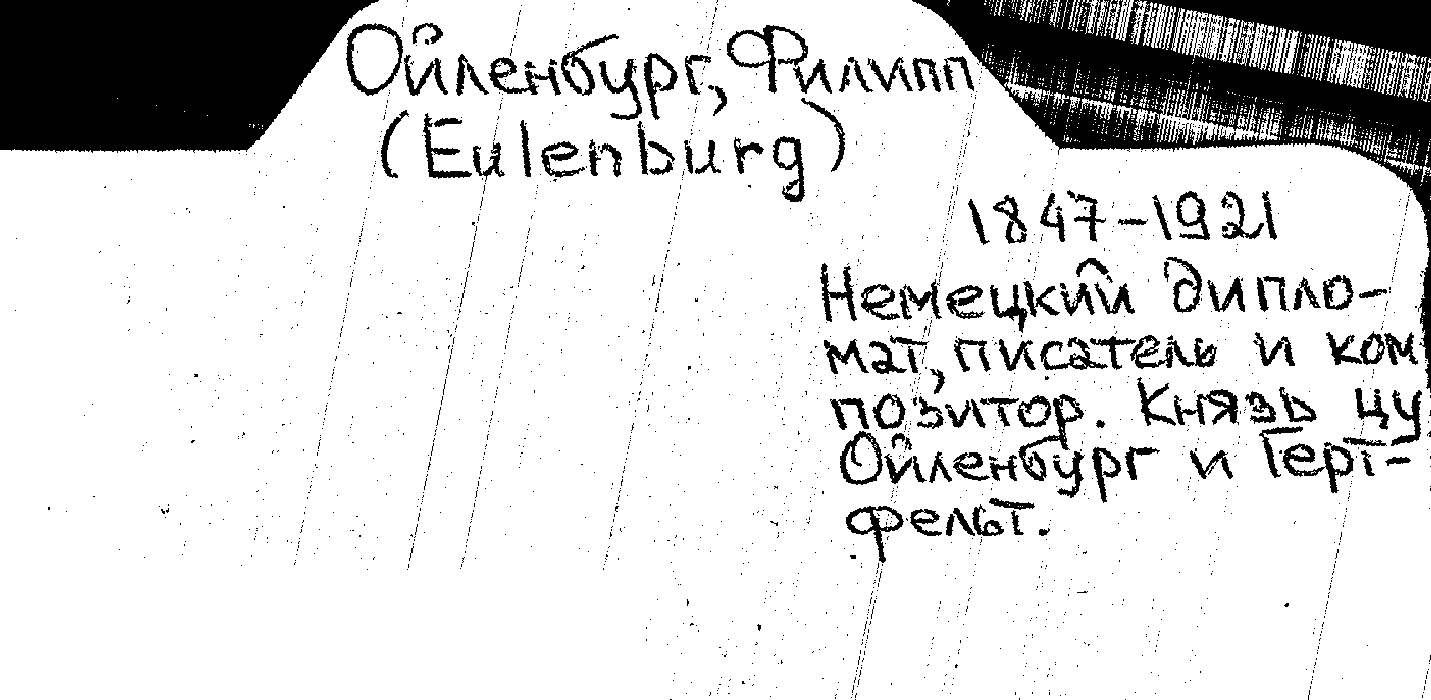 Ойленбург, Филипп
(Eulenburg)
1847-1921
Немецкий дипло-
мат, писатель и ком
позитор. Князь цу
Ойленбург и Герт-
фельт.